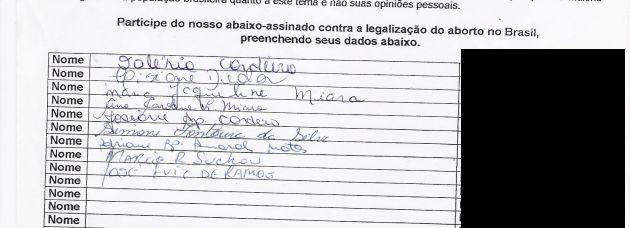 população brasileira quanto a este tema e não suas opiniões pessoais.
Participe do nosso abaixo-assinado contra a legalização do aborto no Brasil,
preenchendo seus dados abaixo.
Nome Cordeiro
Nome
Nome Mara Jaqueline Miara
Nome Ana Caroline R. Miara
Nome Josiane Ap. Cordeiro
Nome Simone Fontoura da Silva
Nome Adriane Ap. Amaral Matos
Nome MARCIO R. Suchow
Nome JOSÉ LUIZ DE RAMOS
Nome
Nome
Nome